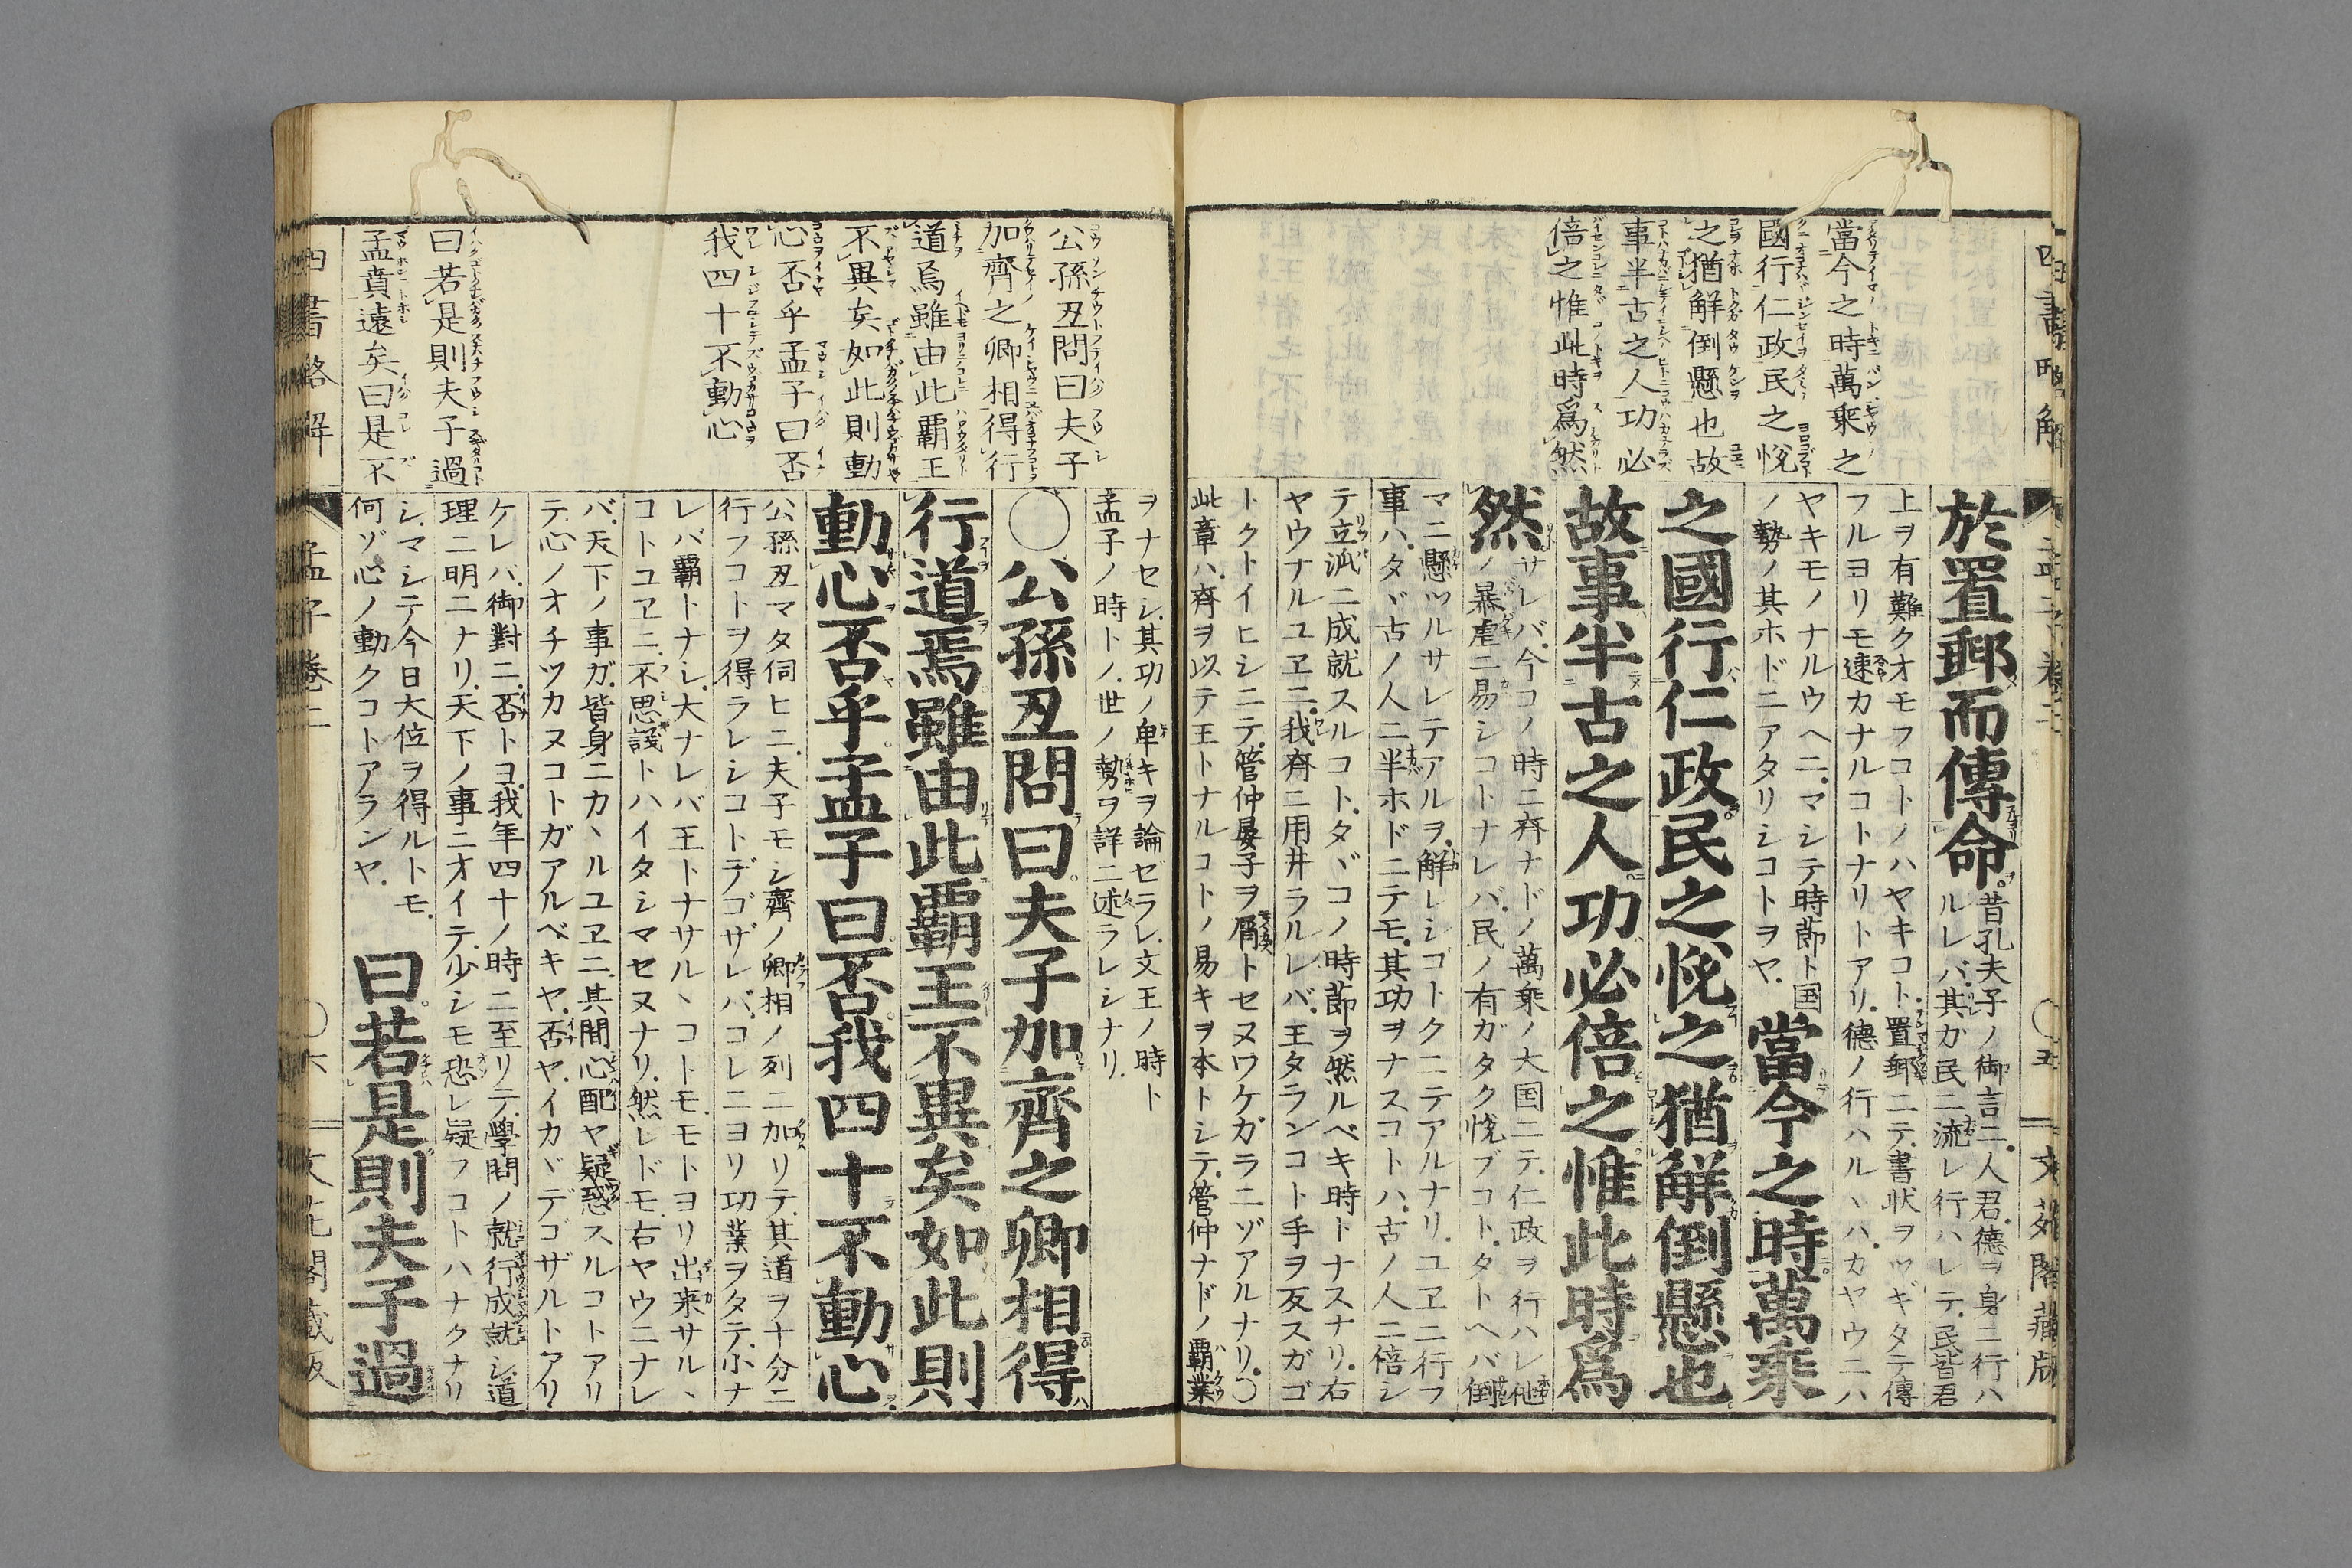 四書略解
孟子卷二
〇五
文苑閣蔵版
當今之時萬乘之
國行仁政民之悅
之猶解倒懸也故
事半古之人功必
倍之惟此時爲然
於置郵而傳命
昔孔夫子ノ御言ニ人君德ヲ身ニ行ハ
ルレバ其カ民ニ流レ行ハレテ民皆君
上ヲ有難クオモフコトノハヤキコト置郵ニテ書状ヲツギタテ傳
フルヨリモ速カナルコトナリトアリ德ノ行ハルヽハカヤウニハ
ヤキモノナルウヘニマシテ時節ト国
ノ勢ノ其ホドニアタリシコトヲヤ
當今之時萬乘
之國行仁政民之悅之猶解倒懸也
故事半古之人功必倍之惟此時爲
然
サレバ今コノ時ニ齊ナドノ萬乘ノ大国ニテ仁政ヲ行ハレ他
ノ暴虐ニ易シコトナレバ民ノ有ガタク悅ブコトタトヘバ倒
マニ懸ツルサレテアルヲ解レシゴトクニテアルナリユヱニ行フ
事ハタヾ古ノ人ニ半ホドニテモ其功ヲナスコトハ古ノ人ニ倍シ
テ立派ニ成就スルコトタヾコノ時節ヲ然ルベキ時トナスナリ右
ヤウナルユヱニ我齊ニ用井ラルレバ王タランコト手ヲ反スガゴ
トクトイヒシニテ管仲晏子ヲ屑トセヌワケガラニゾアルナリ〇
此章ハ齊ヲ以テ王トナルコトノ易キヲ本トシテ管仲ナドノ覇業
公孫丑問曰夫子
加齊之卿相得行
道焉雖由此覇王
不異矣如此則動
心否乎孟子曰否
我四十不動心
曰若是則夫子過
孟賁遠矣曰是不
ヲナセシ其功ノ卑キヲ論ゼラレ文王ノ時ト
孟子ノ時トノ世ノ勢ヲ詳ニ述ラレシナリ
〇公孫丑問曰夫子加齊之卿相得
行道焉雖由此覇王不異矣如此則
動心否乎孟子曰否我四十不動心
公孫丑マタ伺ヒニ夫子モシ齊ノ卿相ノ列ニ加リテ其道ヲ十分ニ
行フコトヲ得ラレシコトデゴザレバコレニヨリ功業ヲタテ小ナ
レバ覇トナシ大ナレバ王トナサルヽコトモモトヨリ出来サルヽ
コトユヱニ不思議トハイタシマセヌナリ然レドモ右ヤウニナレ
バ天下ノ事ガ皆身ニカヽルユヱニ其間心配ヤ疑惑スルコトアリ
テ心ノオチツカヌコトガアルベキヤ否ヤイカヾデゴザルトアリ
ケレバ御對ニ否トコ我年四十ノ時ニ至リテ學問ノ就行成就シ道
理ニ明ニナリ天下ノ事ニオイテ少シモ恐レ疑フコトハナクナリ
シマシテ今日大位ヲ得ルトモ
何ゾ心ノ動クコトアランヤ
曰若是則夫子過
四書略解
孟子卷二
〇六
文苑閣蔵版